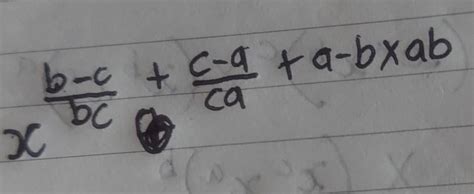 x^{\frac{b-c}{bc} + \frac{c-a}{ca} + a-b×ab}